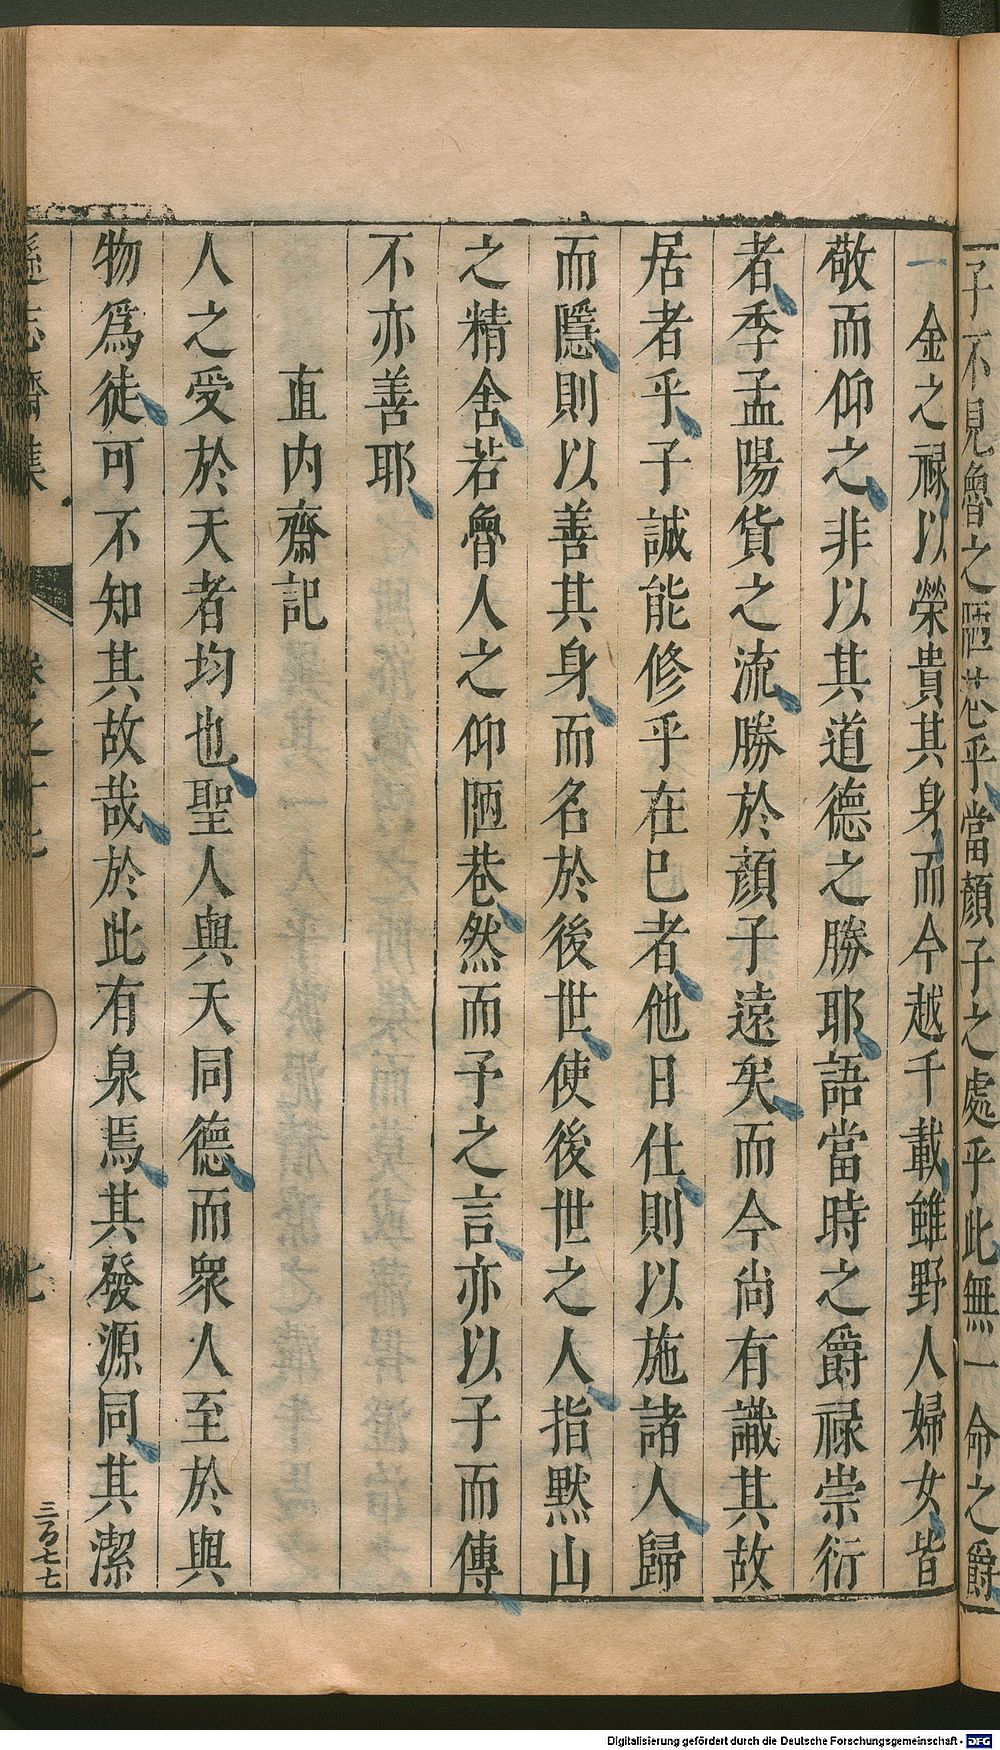 子不見魯之陋巷乎當顏子之處乎此無一命之爵
一金之祿以榮貴其身而今越千載雖野人婦女皆
敬而仰之非以其道德之勝耶語當時之爵祿崇衍
者季孟陽貨之流勝於顏子遠矣而今尚有識其故
居者乎子誠能修乎在已者他日仕則以施諸人歸
而隱則以善其身而名於後世使後世之人指黙山
之精舍若魯人之仰陋巷然而予之言亦以子而傳
不亦善耶
直內齋記
人之受於天者均也聖人與天同德而衆人至於與
物爲徒可不知其故哉於此有泉焉其發源同其潔
遜志齋集
卷之十七
七
三百七七
Digitalisierung gefördert durch die Deutsche Forschungsgemeinschaft - DFG